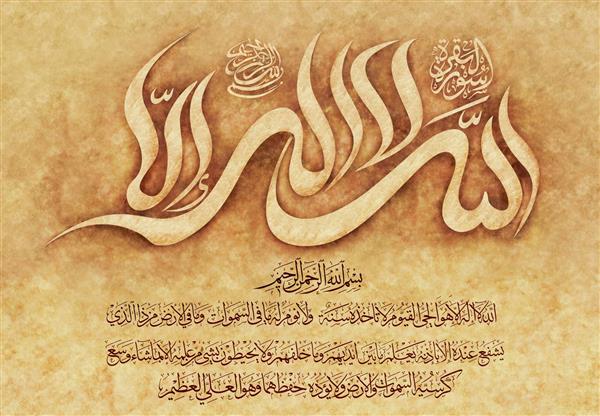 سورة البقرة
بسم الله الرحمن الرحيم
الله لا إله إلا
بسم الله الرحمن الرحيم
الله لا اله الا هو الحي القيوم لا تاخذه سنة ولا نوم له ما في السموات وما في الارض من ذا الذي
يشفع عنده الا باذنه يعلم ما بين ايديهم وما خلفهم ولا يحيطون بشيء من علمه الا بما شاء وسع
كرسيه السموات والارض ولا يوده حفظهما وهو العلي العظيم